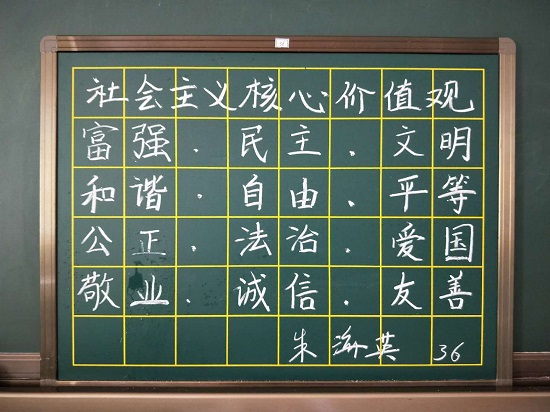 社会主义核心价值观
富强.民主.文明
和谐.自由.平等
公正.法治.爱国
敬业.诚信.友善
朱海英 36